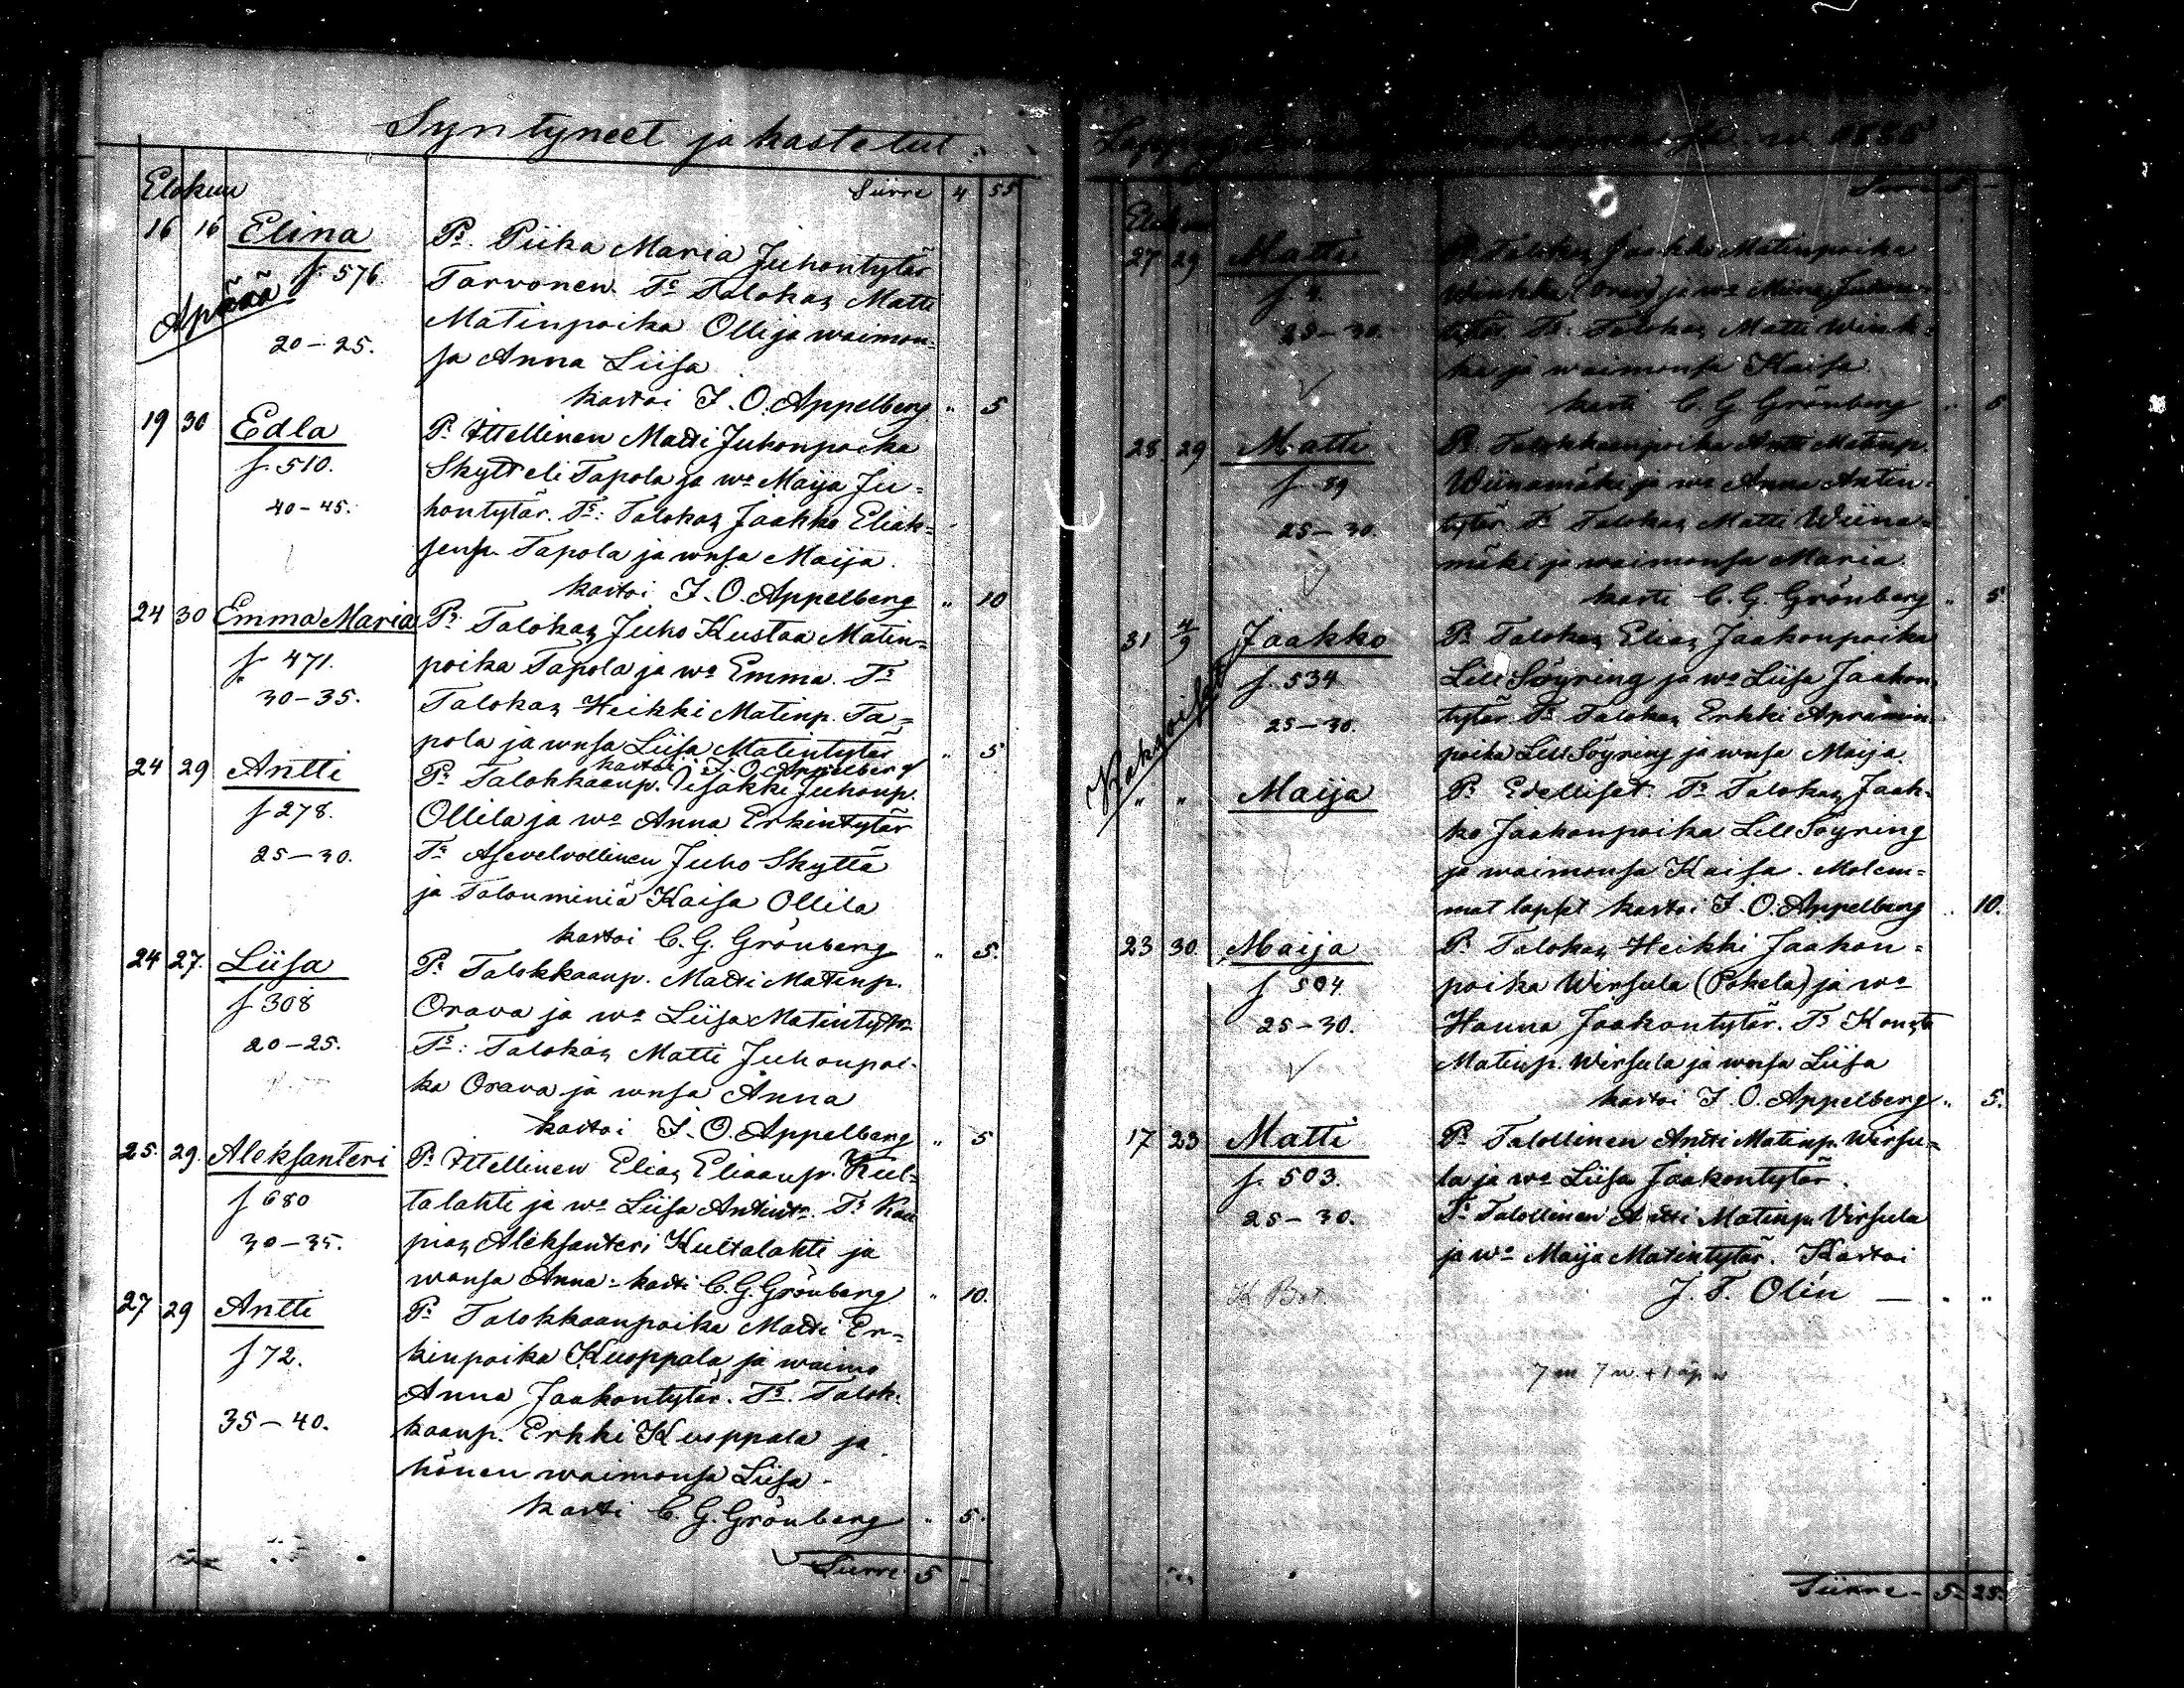 Syntyneet ja kastetut
Elokuu
Siirre 4 55
16 16 Elina Ps. Piika Maria Juhontytär
Äpärä f 576. Tarvonen. Ts Talokas Matti
Matinpoika Olli ja waimon-
20-25. sa Anna Liisa
kastoi J. O. Appelberg " 5
19 30 Edla Ps Itellinen Matti Juhonpoika
f. 510. Skytt eli Tapola ja wo Maija Ju=
40-45. hontytär. Ts: Talokas Jaakko Eliak=
senp. Tapola ja wnsa Maija.
kastoi J. O. Appelberg " 10
24 30 Emma Maria Ps Talokas Juho Kustaa Matin=
f 471. poika Tapola ja wo Emma. Ts
30-35. Talokas Heikki Matinp. Ta=
pola ja wnsa Liisa Matintytär " 5
kastoi J. O. Appelberg
24 29 Antti Ps Talokkaanp. Iisakki Juhonp.
f 278. Ollila ja wo Anna Erkintytär
25-30. Ts Asevelvollinen Juho Skyttä
ja Talonminiä Kaisa Ollila
kastoi C. G. Grönberg " 5.
24 27. Liisa Ps Talokkaanp. Matti Matinp.
f 308 Orava ja wo Liisa Matintytär
20-25. Ts: Talokas Matti Juhonpoi-
ka Orava ja wnsa Anna
kastoi J. O. Appelberg " 5
25. 29. Aleksanteri Ps Itellinen Elias Eliaanp. Kul=
f 680 talahti ja wo Liisa Antint. Ts Kau
30-35. pias Aleksanteri Kultalahti ja
wonsa Anna - kasti C. G. Grönberg " 10.
27 29 Antti Ps Talokkaanpoika Matti Er=
f 72. kinpoika Kuoppala ja waimo
Anna Jaakontytär. Ts. Talok-
35-40. kaanp. Erkki Kuoppala ja
hänen waimonsa Liisa.
kasti C. G. Grönberg " 5.
Siirre 5 -
Siirre 5 -
Elokuu
27 29 Matti Ps Talokas Jaakko Matinpoika
f. 4. ja wo Juhon-
25-30. tytär. Ts: Talokas Matti Wink-
ka ja waimonsa Kaisa.
kasti C. G. Grönberg " 5
28 29 Matti Ps Talokkaanpoika Antti Matinp.
f 59 Wiinamäki ja wo Anna Antin-
25-30. tytär. Ts Talokas Matti Wiina=
mäki ja waimonsa Maria.
kasti C. G. Grönberg " 5
31 4/9 Jaakko Ps Talokas Elias Jaakonpoika
f. 534 Lill Söyring ja wo Liisa Jaakon-
25-30. tytär. Ts Talokas Erkki Apramin
poika Lill Söyring ja wnsa Maija.
Kaksoiset
" " Maija Ps Edelliset. Ts Talokas Jaak-
ko Jaakonpoika Lill Söyring
ja waimonsa Kaisa. Molem=
mat lapset kastoi J. O. Appelberg " 10.
23 30. Maija Ps Talokas Heikki Jaakon=
f 504 poika Wirsula (Pokela) ja wo
25-30. Hanna Jaakontytär. Ts Konsta
Matinp. Wirsula ja wnsa Liisa
kastoi J. O. Appelberg " 5.
17 23 Matti Ps Talollinen Antti Matinp. Wirsu=
f. 503. la ja wo Liisa Jaakontytär.
25-30. Ts Talollinen Matti Matinp. Virsula
ja wo Maija Matintytär. Kastoi
J. F. Olin — " "
7 m 7 w + 1 äp w
Siirre - 5. 25.